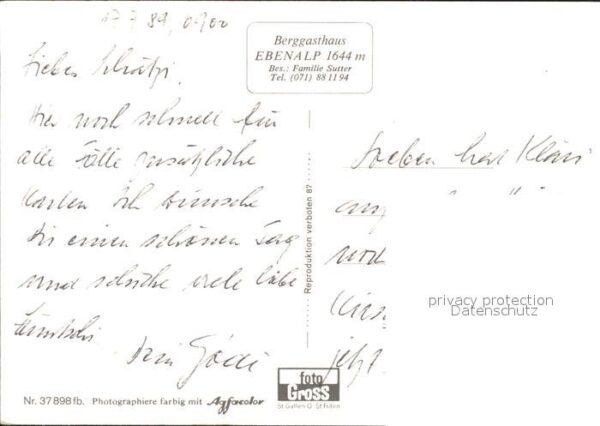 17.7.89, 0900
Berggasthaus
EBENALP 1644 m
Bes.: Familie Sutter
Tel. (071) 88 11 94
Liebes Schätzi
Hier noch schnell für
alle Fälle zusätzliche
Karten Ich wünsche
Dir einen schönen Tag
und schicke viele liebe
Dein Gödi
Soeben hat Kläri
" "
noch
jetzt
Reproduktion verboten 87
privacy protection
Datenschutz
foto
Gross
St Gallen O. St Fiden
Nr. 37 898 fb. Photographiere farbig mit Agfacolor